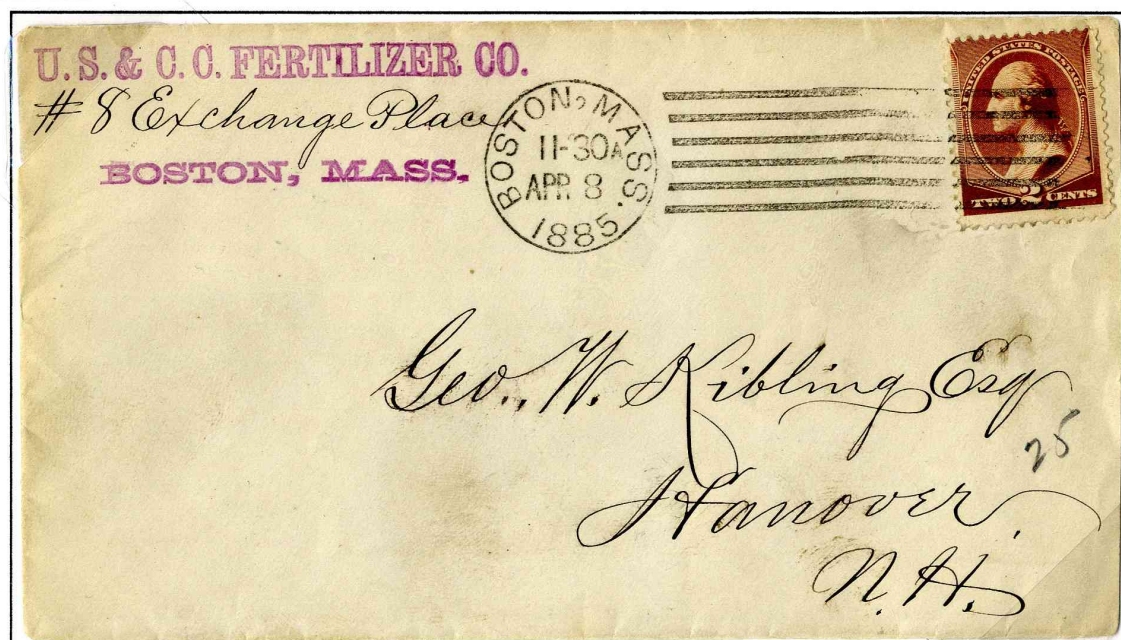 U.S. & C.C. FERTILIZER CO.
# 8 Exchange Place
BOSTON, MASS.
BOSTON, MASS.
11-30A
APR 8
1885.
UNITED STATES POSTAGE
TWO 2 CENTS
Geo. W. Kibling Esq
25
Hanover,
N.H.